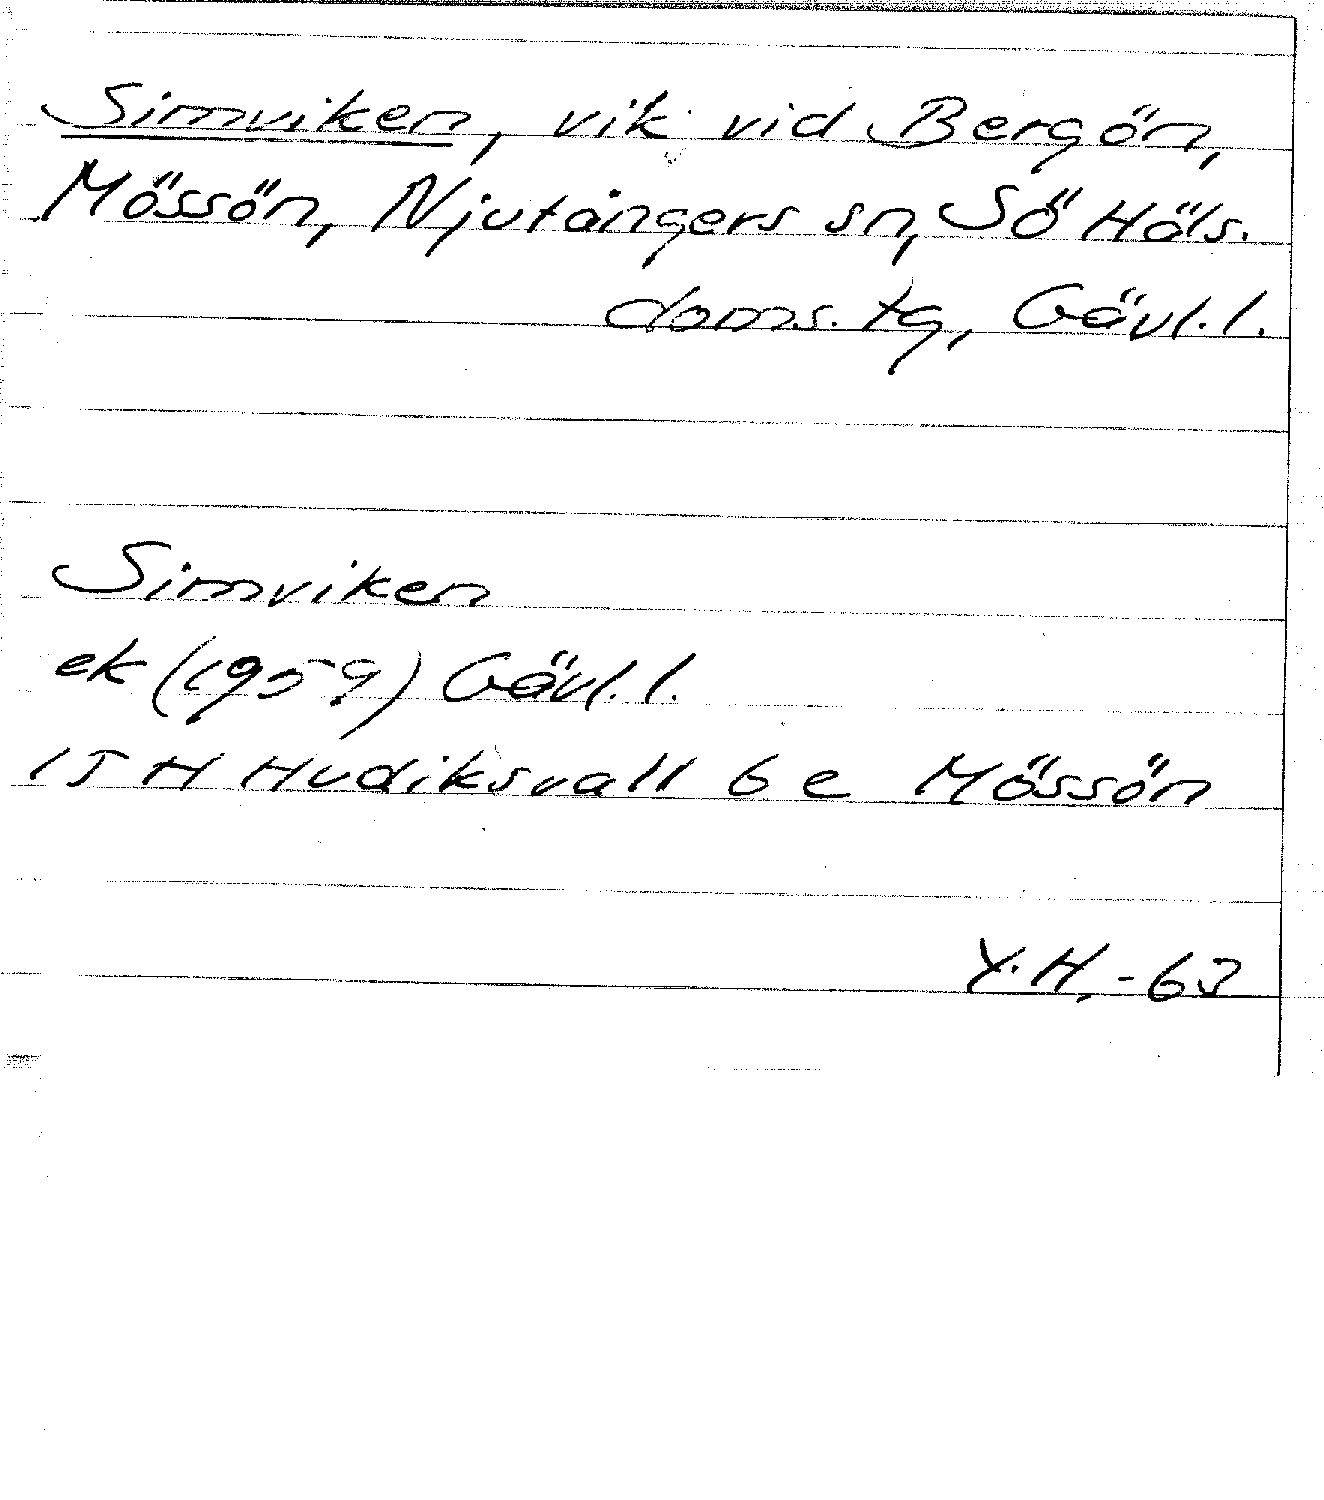 Simviken, vik vid Bergön,
Mössön, Njutångers sn, Sö Häls.
doms. tg, Gävl. l.
Simviken
ek (1959) Gävl. l.
15 H Hudiksvall 6 e Mössön
Y. H, -63